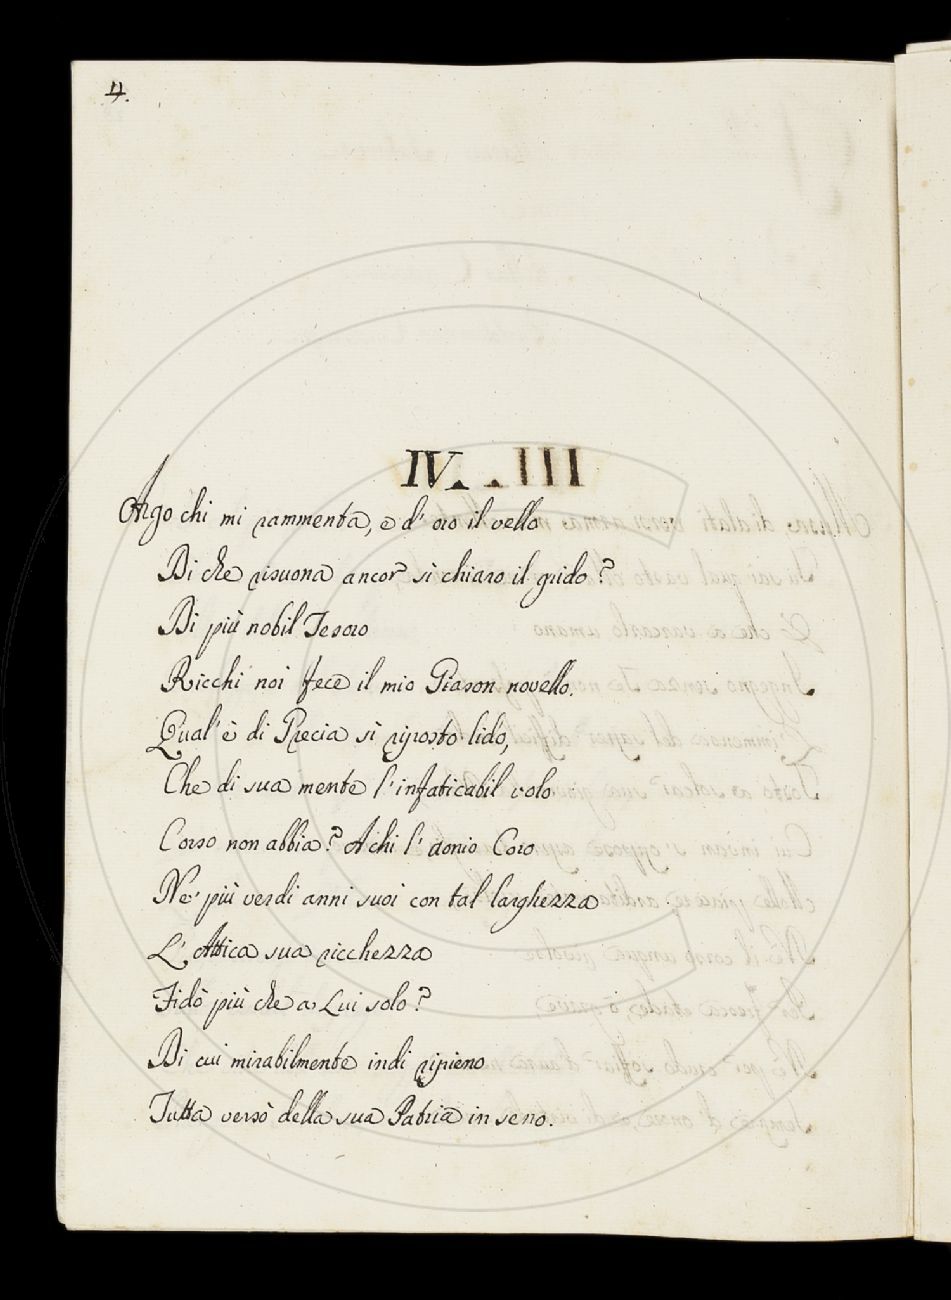 4.
IV.
Argo chi mi rammenta, e d' oro il vello
Di che risuona ancor sì chiaro il grido?
Di più nobil Tesoro
Ricchi noi fece il mio Giason novello.
Qual' è di Grecia sì riposto lido,
Che di sua mente l' infaticabil volo
Corso non abbia? A chi l' Aonio Coro
Ne' più verdi anni suoi con tal larghezza
L' Attica sua ricchezza
Fidò più che a Lui solo?
Di cui mirabilmente indi ripieno
Tutta versò della sua Patria in seno.